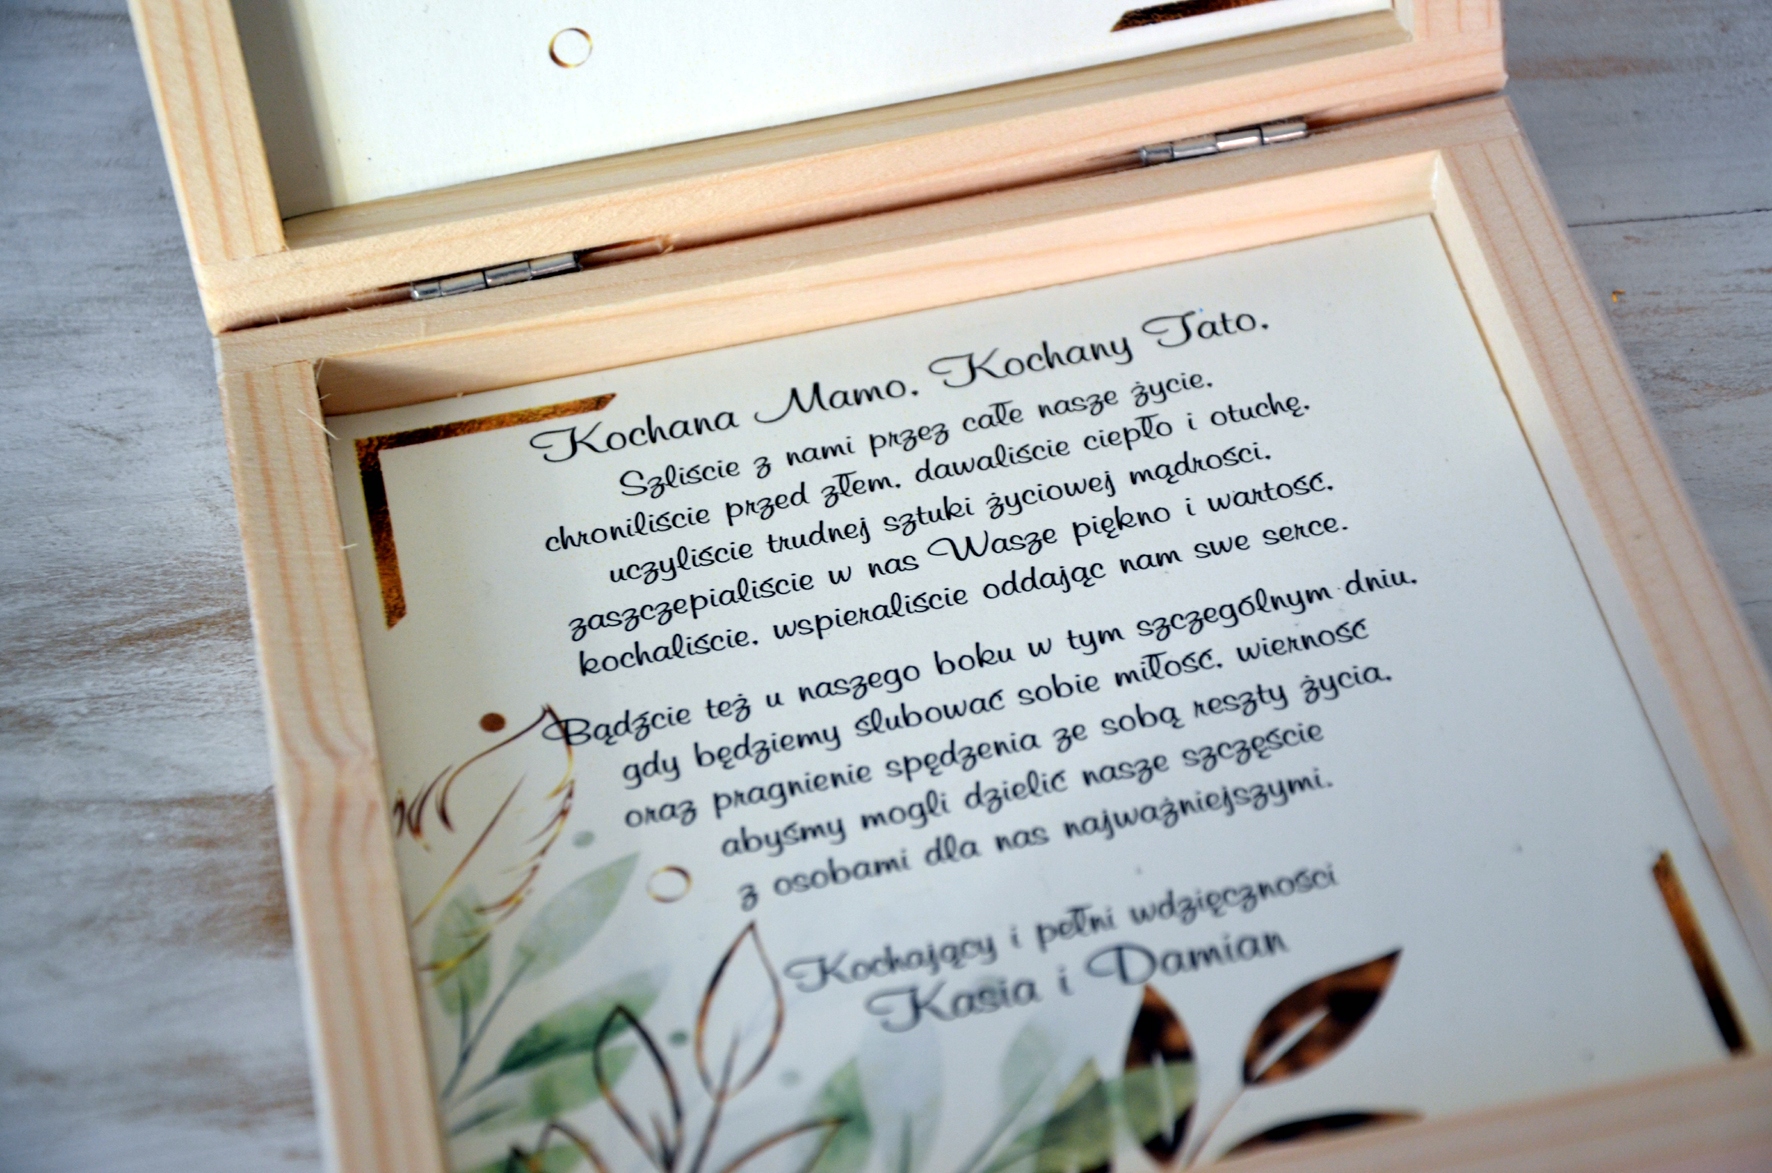 Kochana Mamo. Kochany Tato.
Szliście z nami przez całe nasze życie.
chroniliście przed złem. dawaliście ciepło i otuchę.
uczyliście trudnej sztuki życiowej mądrości.
zaszczepialiście w nas Wasze piękno i wartość.
kochaliście. wspieraliście oddając nam swe serce.
Bądźcie też u naszego boku w tym szczególnym dniu.
gdy będziemy ślubować sobie miłość. wierność
oraz pragnienie spędzenia ze sobą reszty życia.
abyśmy mogli dzielić nasze szczęście
z osobami dla nas najważniejszymi.
Kochający i pełni wdzięczności
Kasia i Damian